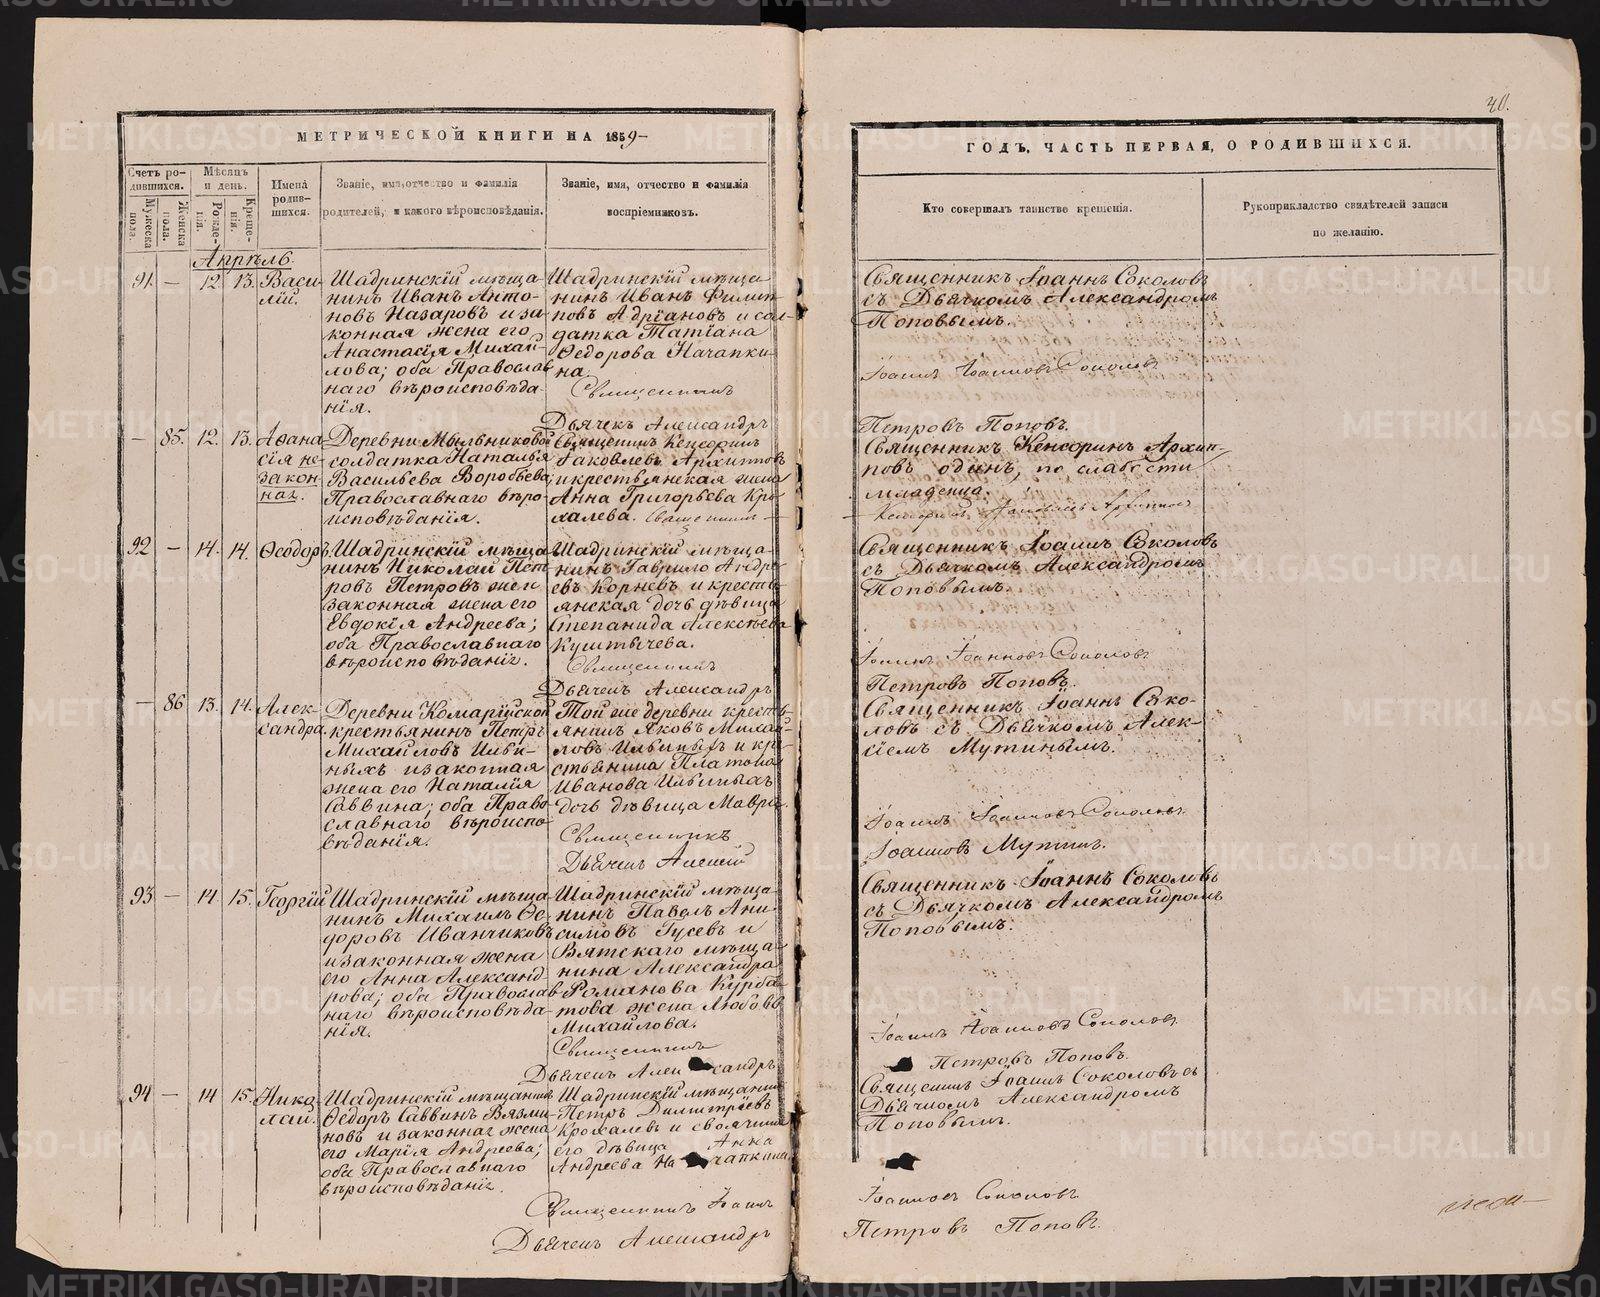 40.
МЕТРИЧЕСКОЙ КНИГИ НА 1859
ГОДЪ, ЧАСТЬ ПЕРВАЯ, О РОДИВШИХСЯ.
Счетъ ро-
дившихся.
Мужеска
пола.
Женска
пола.
Мѣсяцъ
и день.
Рожде-
нія.
Креще-
нія.
Имена
родив-
шихся.
Званіе, имя, отчество и фамилія
родителей, и какого вѣроисповѣданія.
Званіе, имя, отчество и фамилія
воспріемниковъ.
Кто совершалъ таинство крещенія.
Рукоприкладство свидѣтелей записи
по желанію.
Апрѣль
91. – 12. 13. Васи-
лій.
Шадринскій мѣща-
нинъ Иванъ Анто-
новъ Назаровъ и за-
конная жена его
Анастасія Михай-
лова; оба Православ
наго вѣроисповѣда-
нія.
Шадринскій мѣща
нинъ Иванъ Филип
повъ Адріановъ и сол-
датка Татіана
Ѳедорова Начапки-
на.
Священникъ
Дьячекъ Александръ
Священникъ Іоаннъ Соколовъ
съ Дьячкомъ Александромъ
Поповымъ.
Іоаннъ Іоанновъ Соколовъ
Петровъ Поповъ.
– 85. 12. 13. Аѳана
сія не-
закон-
ная.
Деревни Мыльниковой
солдатка Наталья
Васильева Воробьева;
Православнаго вѣро-
исповѣданія.
Священникъ Кенсоринъ
Іаковлевъ Архипповъ
и крестьянская жена
Анна Григорьева Кро
халева. Священникъ
Священникъ Кенсоринъ Архип-
повъ одинъ, по слабости
младенца.
92 – 14. 14. Ѳеодоръ.
Шадринскій мѣща
нинъ Николай Пет
ровъ Петровъ же и
законная жена его
Евдокія Андреева;
оба Православнаго
вѣроисповѣданія.
Шадринскій мѣща-
нинъ Гаврило Андре
евъ Корневъ и кресть-
янская дочь дѣвица
Степанида Алексѣева
Куштычева.
Священникъ
Дьячекъ Александръ
Священникъ Іоаннъ Соколовъ
съ Дьячкомъ Александромъ
Поповымъ.
Іоаннъ Іоанновъ Соколовъ
Петровъ Поповъ.
– 86 13. 14. Алек-
сандра.
Деревни Комарійской
крестьянинъ Петръ
Михайловъ Ильи-
ныхъ и законная
жена его Наталія
Саввина; оба Право
славнаго вѣроиспо
вѣданія.
Той же деревни кресть-
янинъ Яковъ Михай-
ловъ Ильиныхъ и кре-
стьянина Платона
Иванова Ильиныхъ
дочь дѣвица Мавра.
Священникъ
Дьячекъ Алексій
Священникъ Іоаннъ Соко-
ловъ съ Дьячкомъ Алек-
сіемъ Мутинымъ.
Іоаннъ Іоанновъ Соколовъ
Іоанновъ Мутинъ.
93 – 14 15. Георгій
Шадринскій мѣща
нинъ Михаилъ Ѳе-
доровъ Иванчиковъ
и законная жена
его Анна Александ-
рова; оба Православ
наго вѣроисповѣда-
нія.
Шадринскій мѣща-
нинъ Павелъ Ани-
симовъ Гусевъ и
Вятскаго мѣща-
нина Александра
Романова Курба-
това жена Любовь
Михайлова.
Священникъ
Дьячекъ Александръ
Священникъ Іоаннъ Соколовъ
съ Дьячкомъ Александромъ
Поповымъ.
Іоаннъ Іоанновъ Соколовъ
Петровъ Поповъ.
94 – 14 15. Нико-
лай.
Шадринскій мѣщанинъ
Ѳедоръ Саввинъ Вязми-
новъ и законная жена
его Марія Андреева;
оба Православнаго
вѣроисповѣданія.
Шадринскій мѣщанинъ
Петръ Димитріевъ
Крохалевъ и своячина
его дѣвица Анна
Андреева Начапкина
Священникъ Іоаннъ
Дьячекъ Александръ
Священникъ Іоаннъ Соколовъ съ
Дьячкомъ Александромъ
Поповымъ.
Іоанновъ Соколовъ
Петровъ Поповъ.
METRIKI.GASO-URAL.RU